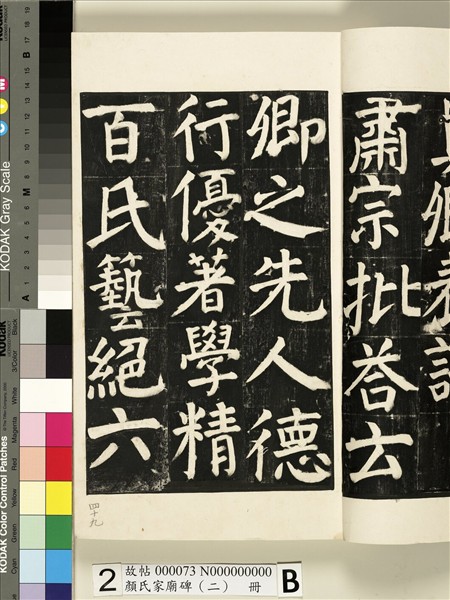 肅宗批荅云
卿之先人德
行優著學精
百氏藝絕六
四十九
2
故帖 000073 N000000000
顏氏家廟碑（二） 冊
B
KODAK Gray Scale
C M
A 1 2 3 4 5 6 M 8 9 10 11 12 13 14 15 B 17 18 19
Kodak
KODAK Color Control Patches
Cyan Green Yellow Red Magenta White 3/Color Black